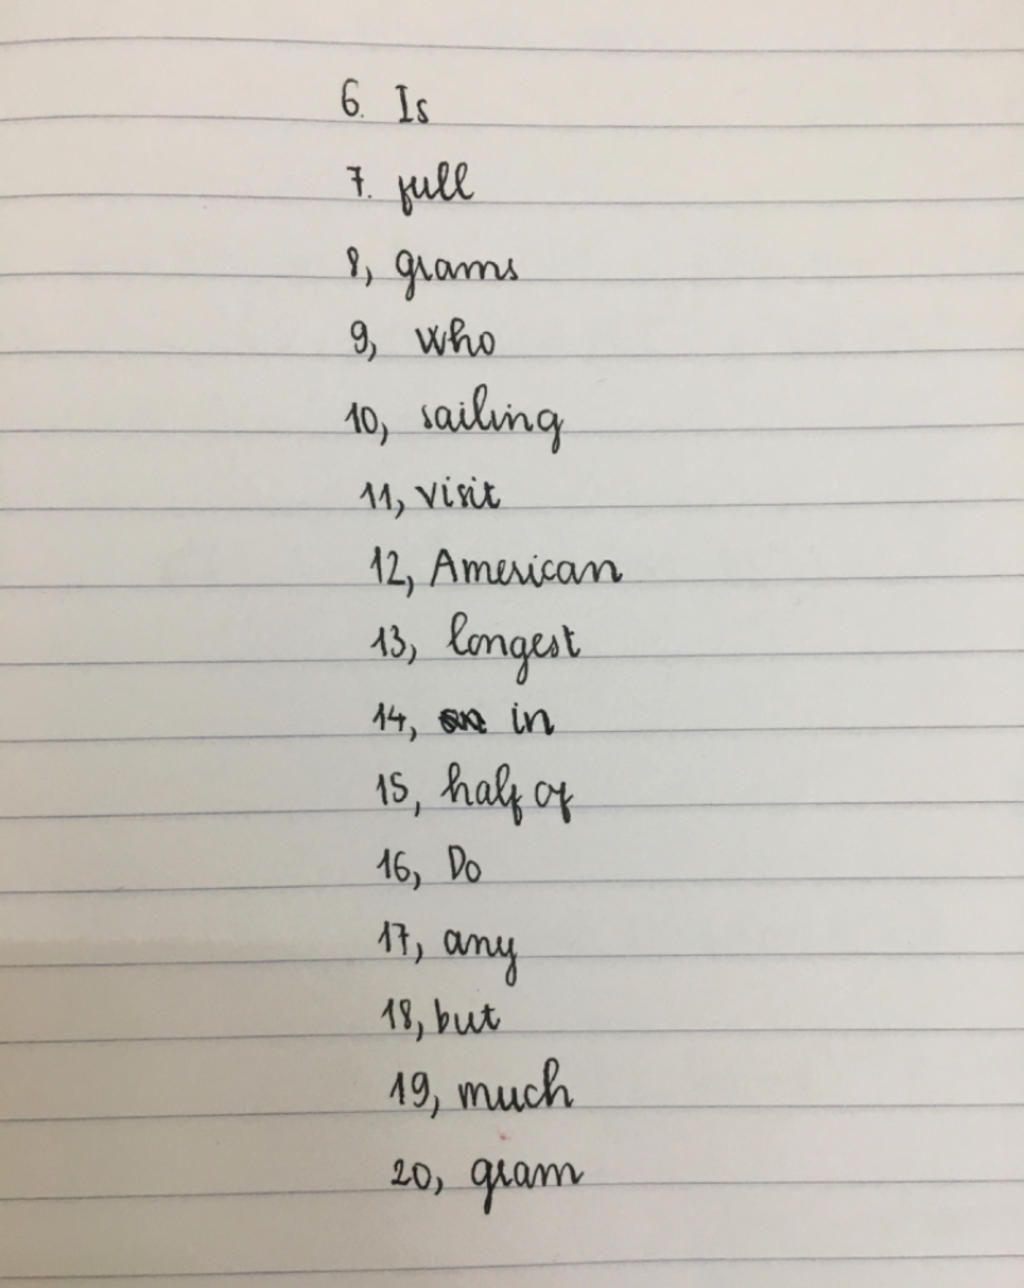 6. Is
7. full
8, grams
9, who
10, sailing
11, visit
12, American
13, longest
14, in
15, half of
16, Do
17, any
18, but
19, much
20, gram